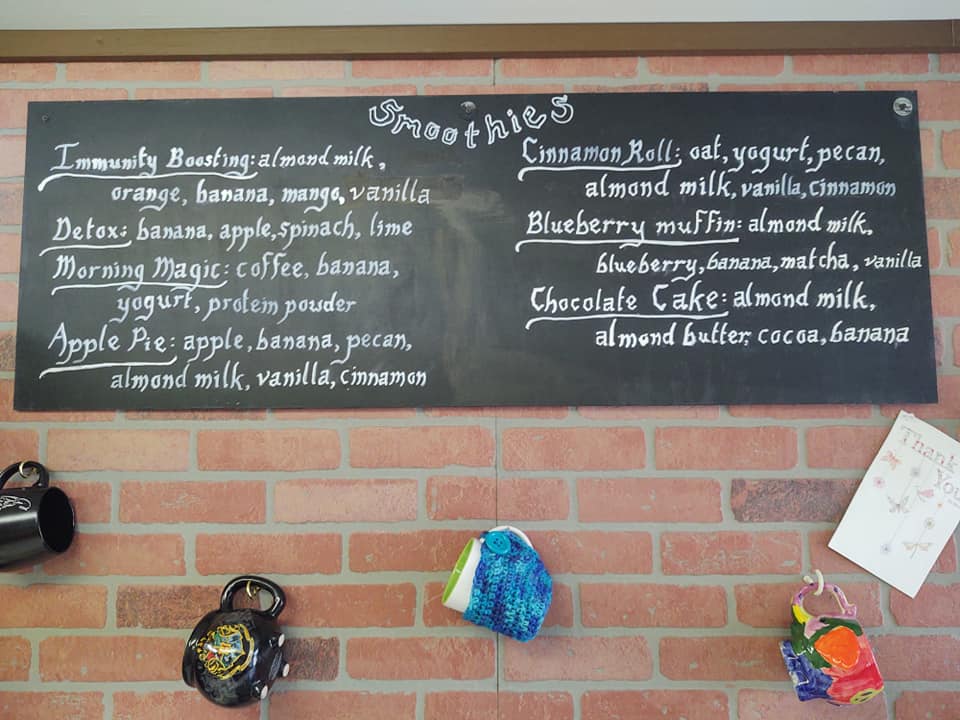 Smoothies
Immunity Boosting: almond milk,
orange, banana, mango, vanilla
Detox: banana, apple, spinach, lime
Morning Magic: coffee, banana,
yogurt, protein powder
Apple Pie: apple, banana, pecan,
almond milk, vanilla, cinnamon
Cinnamon Roll: oat, yogurt, pecan,
almond milk, vanilla, cinnamon
Blueberry muffin: almond milk,
blueberry, banana, matcha, vanilla
Chocolate Cake: almond milk,
almond butter, cocoa, banana
Thank
You